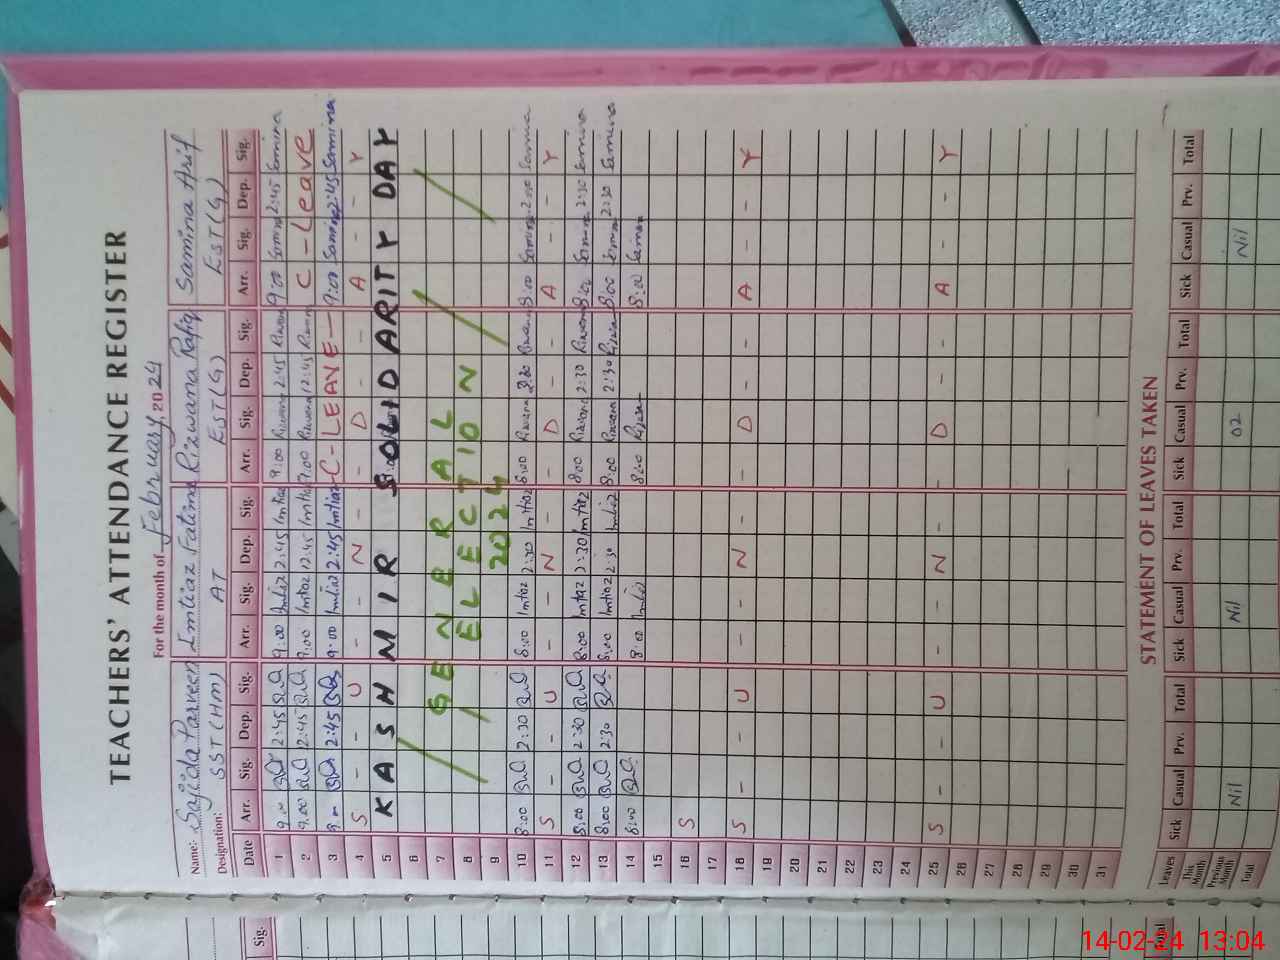 TEACHERS' ATTENDANCE REGISTER
For the month of February, 2024
Name: Sajida Parveen Imtiaz Fatima Rizwana Rafiq Samina Arif
Designation: SST(HM) AT EST(G) EST(G)
Date Arr. Sig. Dep. Sig. Arr. Sig. Dep. Sig. Arr. Sig. Dep. Sig. Arr. Sig. Dep. Sig.
1 9:00 2:45 9:00 Imtiaz 2:45 Imtiaz 9:00 Rizwana 2:45 Rizwana 9:00 Samina 2:45 Samina
2 9:00 2:45 9:00 Imtiaz 12:45 Imtiaz 9:00 Rizwana 12:45 Rizwana C - Leave
3 9:00 2:45 9:00 Imtiaz 2:45 Imtiaz C - LEAVE - 9:00 Samina 2:45 Samina
4 S - - U - - N - - D - - A - - Y
5 KASHMIR SOLIDARITY DAY
6
7 GENERAL
8 ELECTION
9 2024
10 8:00 2:30 8:00 Imtiaz 2:30 Imtiaz 8:00 Rizwana 2:30 Rizwana 8:00 Samina 2:30 Samina
11 S - - U - - N - - D - - A - - Y
12 8:00 2:30 8:00 Imtiaz 2:30 Imtiaz 8:00 Rizwana 2:30 Rizwana 8:00 Samina 2:30 Samina
13 8:00 2:30 8:00 Imtiaz 2:30 Imtiaz 8:00 Rizwana 2:30 Rizwana 8:00 Samina 2:30 Samina
14 8:00 8:00 Imtiaz 8:00 Rizwana 8:00 Samina
15
16 S
17
18 S - - U - - N - - D - - A - - Y
19
20
21
22
23
24
25 S - - U - - N - - D - - A - - Y
26
27
28
29
30
31
STATEMENT OF LEAVES TAKEN
Leaves Sick Casual Prv. Total Sick Casual Prv. Total Sick Casual Prv. Total Sick Casual Prv. Total
This Month
Previous Month Nil Nil 02 Nil
Total
Sig.
Total
14-02-24 13:04